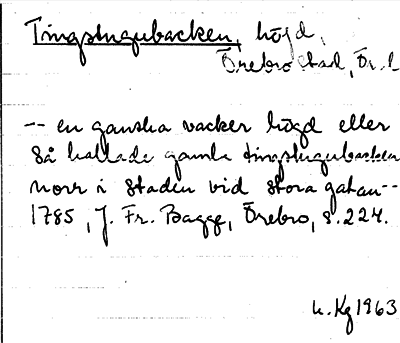 Tingstugubacken, höjd,
Örebro stad, Ör. l
-- en ganska vacker höjd eller
så kallade gamla tingstugubacken
norr i staden vid stora gatan --
1785, J. Fr. Bagge, Örebro, s. 224.
u. Kg 1963